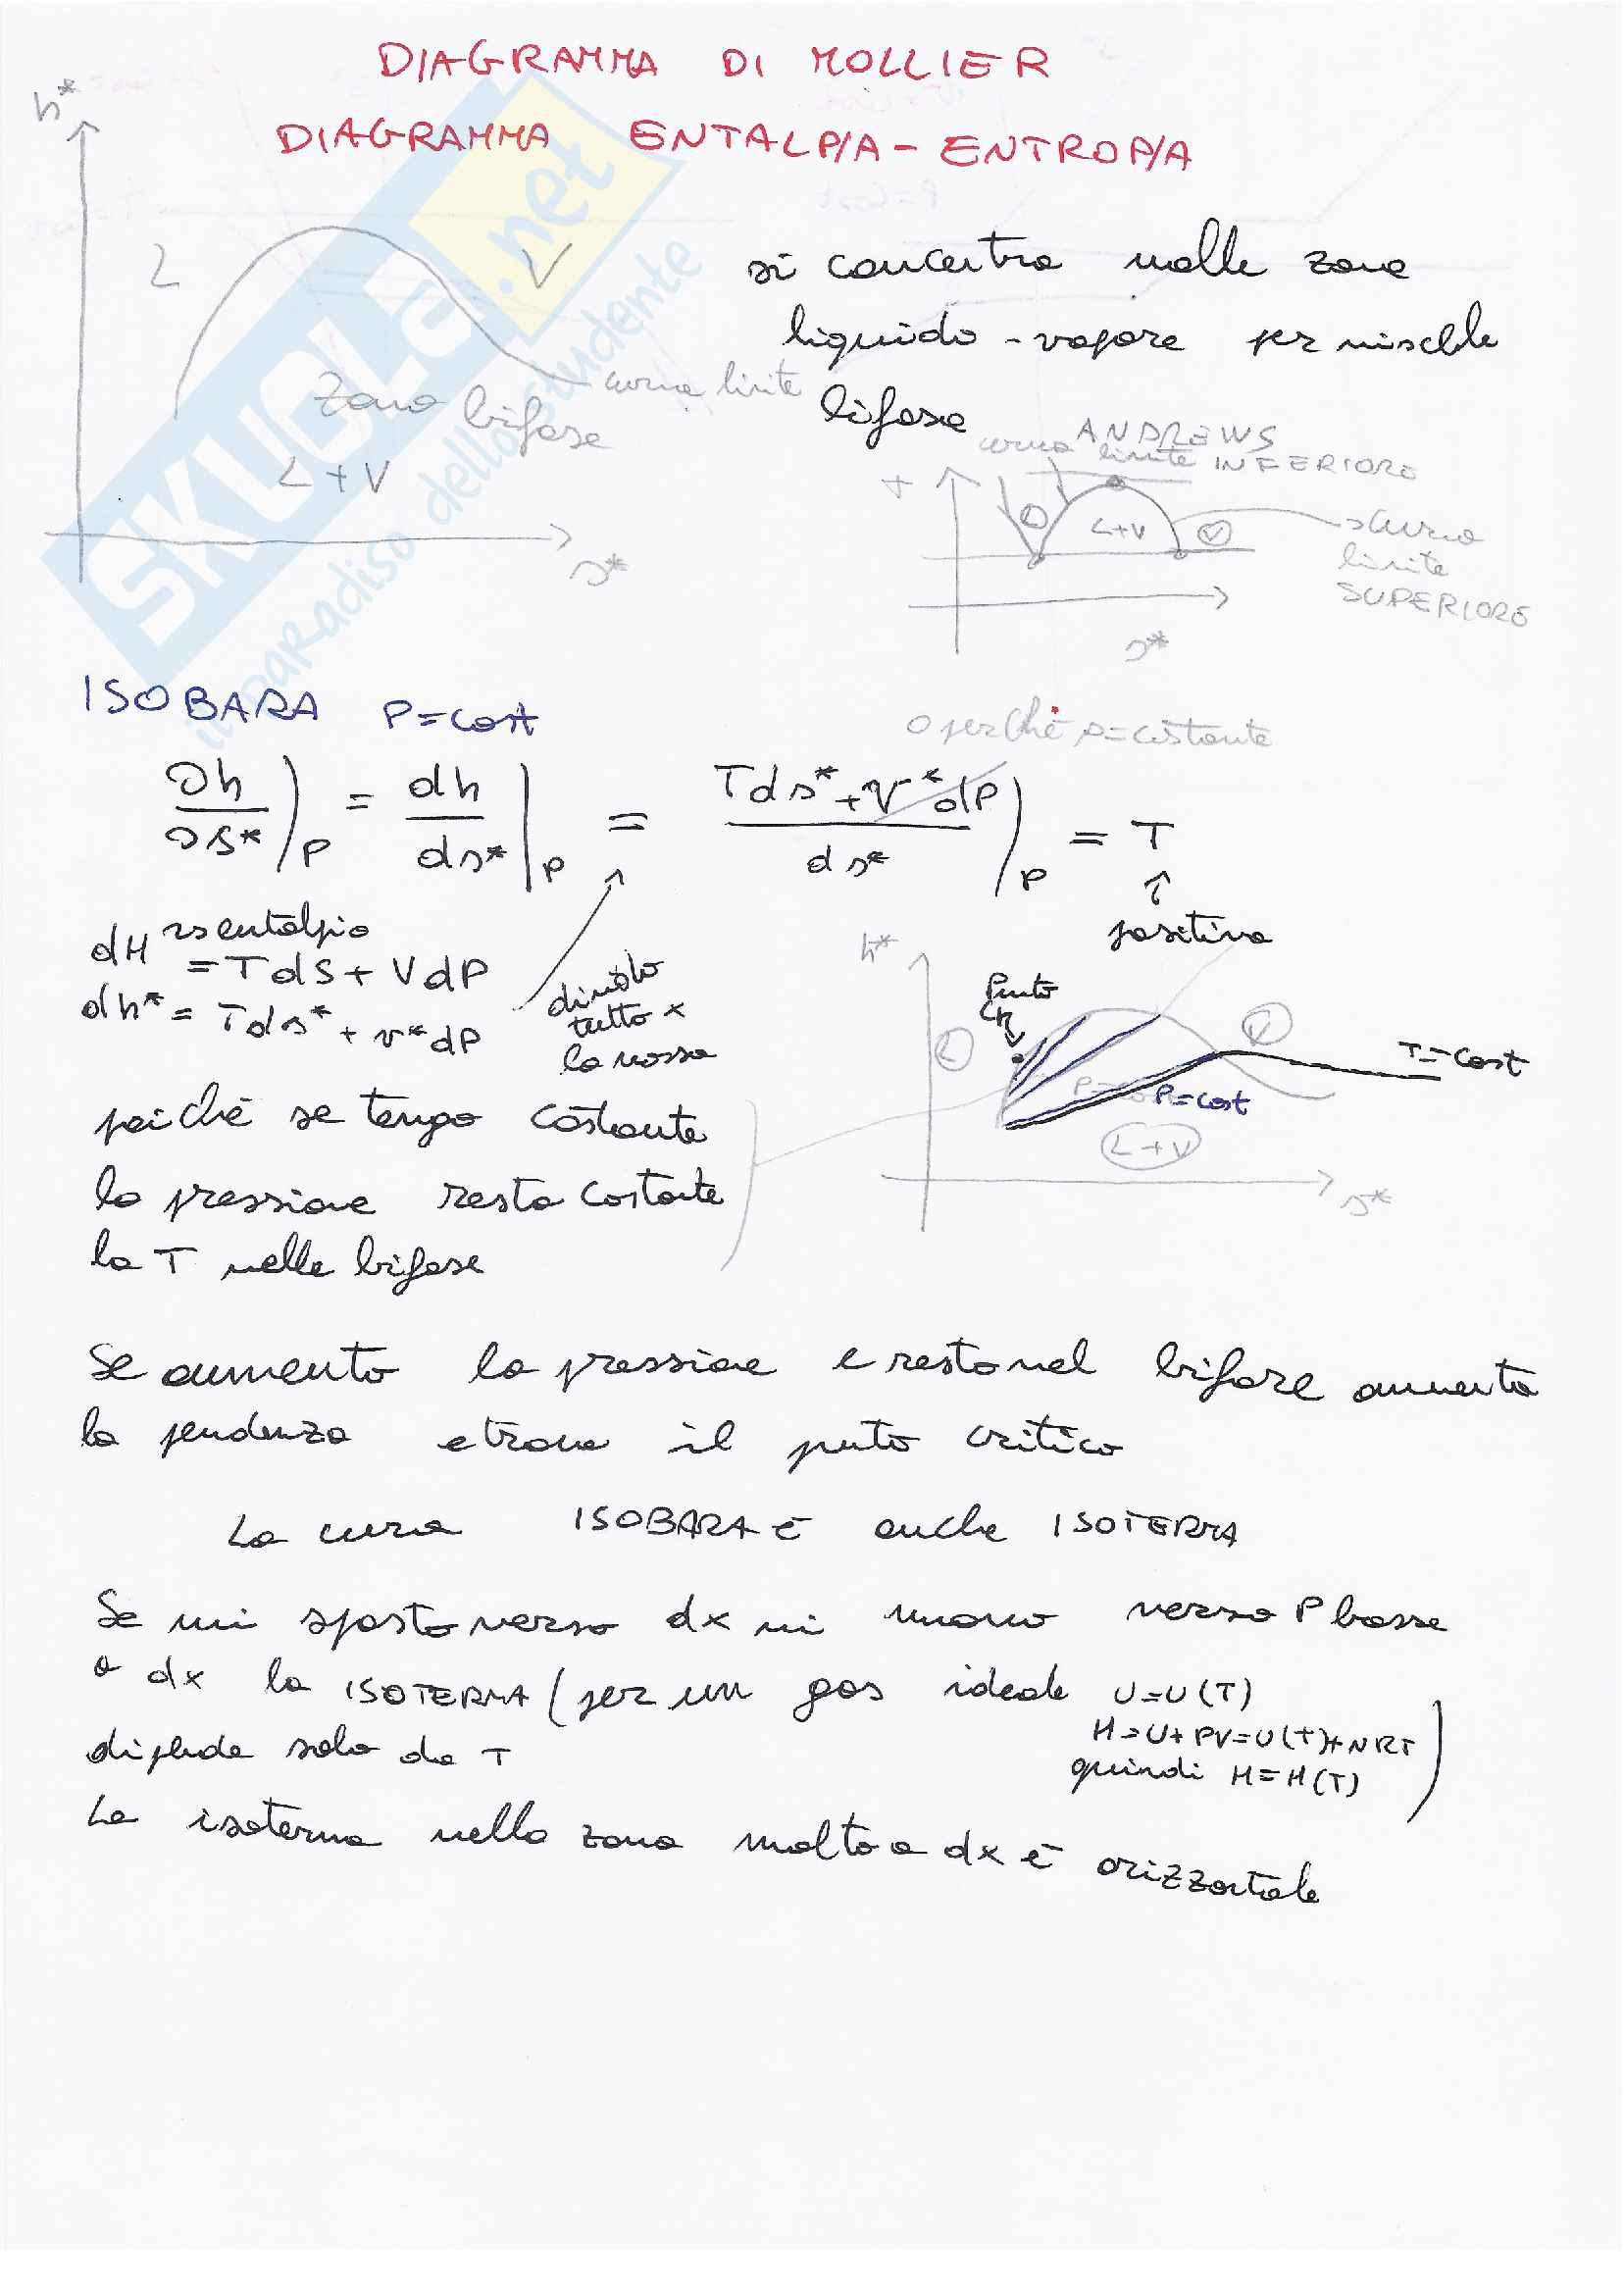 DIAGRAMMA DI MOLLIER
DIAGRAMMA ENTALPIA - ENTROPIA
h*
L
V
zona bifase
L+V
curva limite
s*
SKUOLA.net
il paradiso dello studente
si concentra nelle zone
liquido - vapore per miscele
bifase
ANDREWS
curva limite INFERIORE
T
L
L+V
V
curva
limite
SUPERIORE
s*
ISOBARA P=cost
0 perché P=costante
∂h/∂s*)P = dh/ds*|P = Tds*+v*dP/ds*)P = T
positiva
dH entalpia
= TdS + VdP
dh* = Tds* + v*dP
divido
tutto x
la massa
h*
Punto
CR
L
V
T=cost
P=cost
L+V
s*
poiché se tengo costante
la pressione resta costante
la T nelle bifase
Se aumento la pressione e resto nel bifase aumenta
la pendenza e trova il punto critico
La curva ISOBARA è anche ISOTERMA
Se mi sposto verso dx mi muovo verso P basse
a dx la ISOTERMA (per un gas ideale U=U(T)
H=U+PV=U(T)+NRT
dipende solo da T
quindi H=H(T))
La isoterma nella zona molto a dx è orizzontale